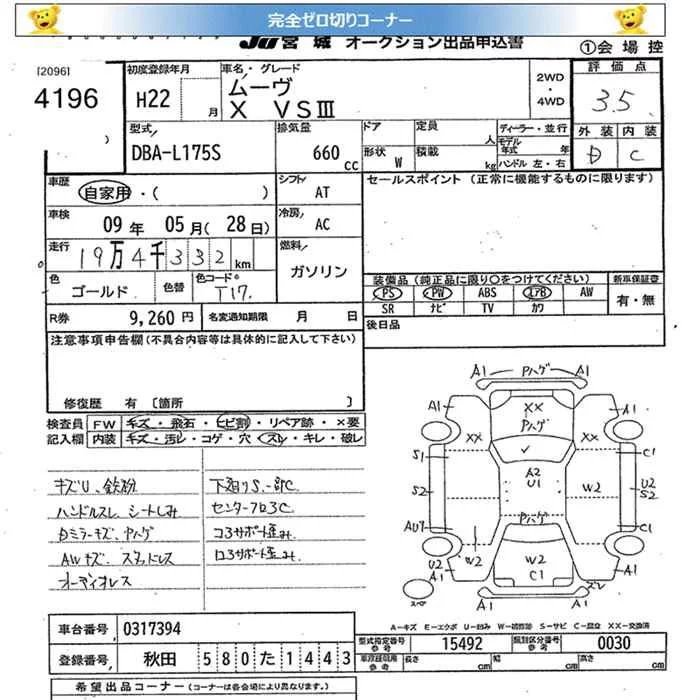 完全ゼロ切りコーナー
JU宮城 オークション出品申込書
①会場控
[2096]
4196
初度登録年月
H22 月
車名・グレード
ムーヴ
X VSⅢ
2WD
・
4WD
評価点
3.5
外装 内装
D C
型式
DBA-L175S
排気量
660 cc
ドア
形状 W
定員 人
積載 kg
ディーラー・並行
モデル年式 年
ハンドル 左・右
車歴
自家用・( )
シフト
AT
セールスポイント (正常に機能するものに限ります)
車検
09年 05月(28日)
冷房
AC
走行
19万4千332km
燃料
ガソリン
色
ゴールド
色替
色コードNo
T17
装備品(純正品に限り○をつけてください)
PS PW ABS エアB AW
SR ナビ TV カワ
新車保証書
有・無
R券 9,260円
名変通知期限 月 日
後日品
注意事項申告欄(不具合内容等は具体的に記入して下さい)
修復歴 有 [箇所 ]
検査員記入欄
FW キズ・飛石・ヒビ割・リペア跡・×要
内装 キズ・汚レ・コゲ・穴・スレ・キレ・破レ
キズU、鉄粉
ハンドルスレ シートしみ
Dミラーキズ、Pハゲ
AWキズ、スタッドレス
オーディオレス
下廻りS、一部C
センターフロアC
コアサポート歪み
ロアサポート歪み
A1 Pハゲ A1
A1 XX A1
Pハゲ
XX XX
S1 C1
A2
U1
S2 W2 U2
S2
Pハゲ
AU1 C1
U2 W2 W2
A1 C1 スレ
スペア A1 A1
A-キズ E-エクボ U-凹み W-補修跡 S-サビ C-腐食 XX-交換済
車台番号 0317394
型式指定番号 参考 15492
類別区分番号 参考 0030
登録番号 秋田 580た1443
車庫証明用 参考 長さ cm 幅 cm 高さ cm
希望出品コーナー (コーナーは各会場により異なります。)